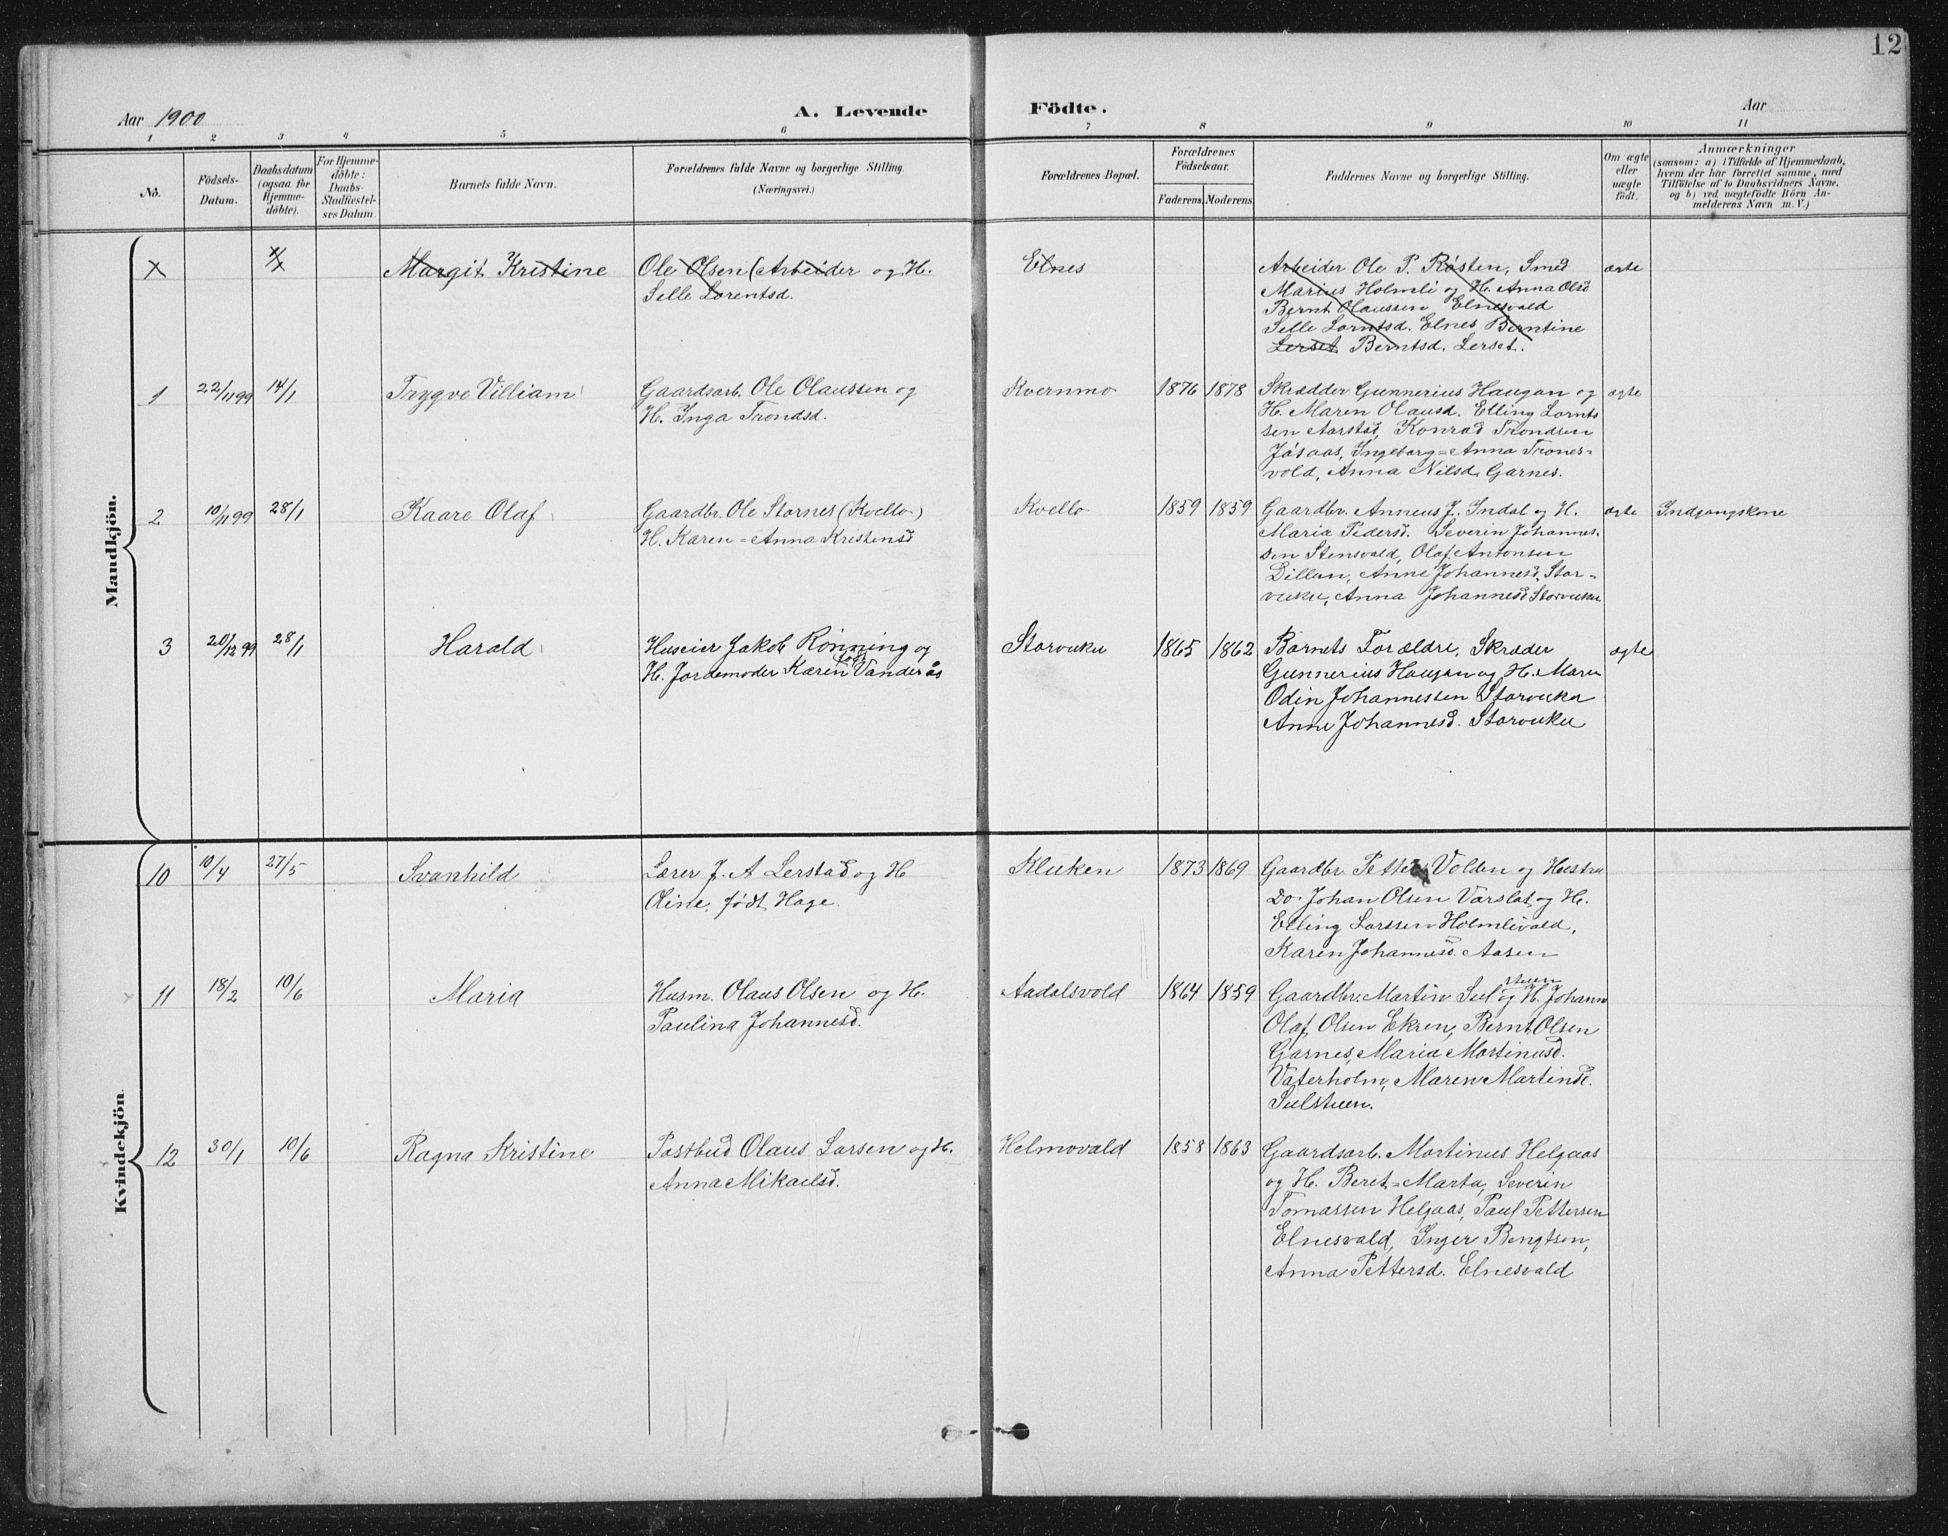 12
Aar 1900
A. Levende
Födte.
Aar
1 2 3 4 5 6 7 8 9 10 11
No.
Födsels-
Datum.
Daabsdatum
(ogsaa for
Hjemme-
döbte).
For Hjemme-
döbte:
Daabs-
Stadfæstel-
ses Datum.
Barnets fulde Navn.
Forældrenes fulde Navne og borgerlige Stilling.
(Næringsvei.)
Forældrenes Bopæl.
Forældrenes
Födselsaar.
Faderens.
Moderens.
Faddernes Navne og borgerlige Stilling.
Om ægte
eller
uægte
födt.
Anmærkninger
(saasom: a) i Tilfælde af Hjemmedaab,
hvem der har forrettet samme, med
Tilföielse af to Daabsvidners Navne,
og b) ved uægtefödte Börn An-
melderens Navn m. V.)
Mandkjön.
Margit Kristine
Ole Olsen (Arbeider og H.
Selle Lorentsd.
Elnes
Arbeider Ole P. Røsten, Smed
Marius Holmli og H. Anna Olsd
Bernt Olaussen Elnesvald
Selle Lorntsd. Elnes Berntine
Lerset Berntsd. Lerset.
ægte
1
22/11 99
14/1
Trygve Villiam
Gaardsarb. Ole Olaussen og
H. Inga Trondsd.
Kvernmo
1876
1878
Skrædder Gunnerius Haugan og
H. Maren Olausd. Elling Lornts
sen Aarstad, Konrad Trondsen
Jøsaas, Ingeborg=Anna Trones-
vold, Anna Nilsd. Garnes.
ægte
2
10/11 99
28/1
Kaare Olaf
Gaardbr. Ole Stornes (Kvello)
H. Karen=Anna Kristensd
Kvello
1859
1859
Gaardbr Anneus J. Indal og H.
Maria Pedersd. Severin Johannes-
sen Stensvald, Olaf Antonsen
Dillan, Anne Johannesd. Stor-
vuku, Anna Johannesd Storvuku
ægte
Indgangskone
3
20/12 99
28/1
Harald
Huseier Jakob Rönning og
H. Jordemoder Karen født Vanderås
Storvuku
1865
1862
Barnets Forældre, Skræder
Gunnerius Haugan og H. Maren
Odin Johannessen Storvuku
Anne Johannesd. Storvuku
ægte
Kvindekjön.
10
10/4
27/5
Svanhild
Lærer J. A Lerstad og H
Oline, født Hage.
Kluken
1873
1869
Gaardbr Petter Volden og Hustru
Do. Johan Olsen Varslot og H.
Elling Larssen Holmlivald,
Karen Johannesd. Aasen
11
18/2
10/6
Maria
Husm. Olaus Olsen og H.
Paulina Johannesd.
Aadalsvold
1864
1859
Gaardbr. Martin Sulstuen og H. Johanna
Olaf Olsen Ekren, Bernt Olsen
Garnes, Maria Martinusd.
Vaterholm, Maren Martinsd.
Sulstuen.
12
30/1
10/6
Ragna Kristine
Postbud Olaus Larsen og H.
Anna Mikaelsd.
Helmovald
1858
1863
Gaardsarb. Martinus Helgaas
og H. Beret=Marta, Severin
Tomassen Helgaas, Paul Pettersen
Elnesvald, Inger Bengtson,
Anna Pettersd. Elnesvald